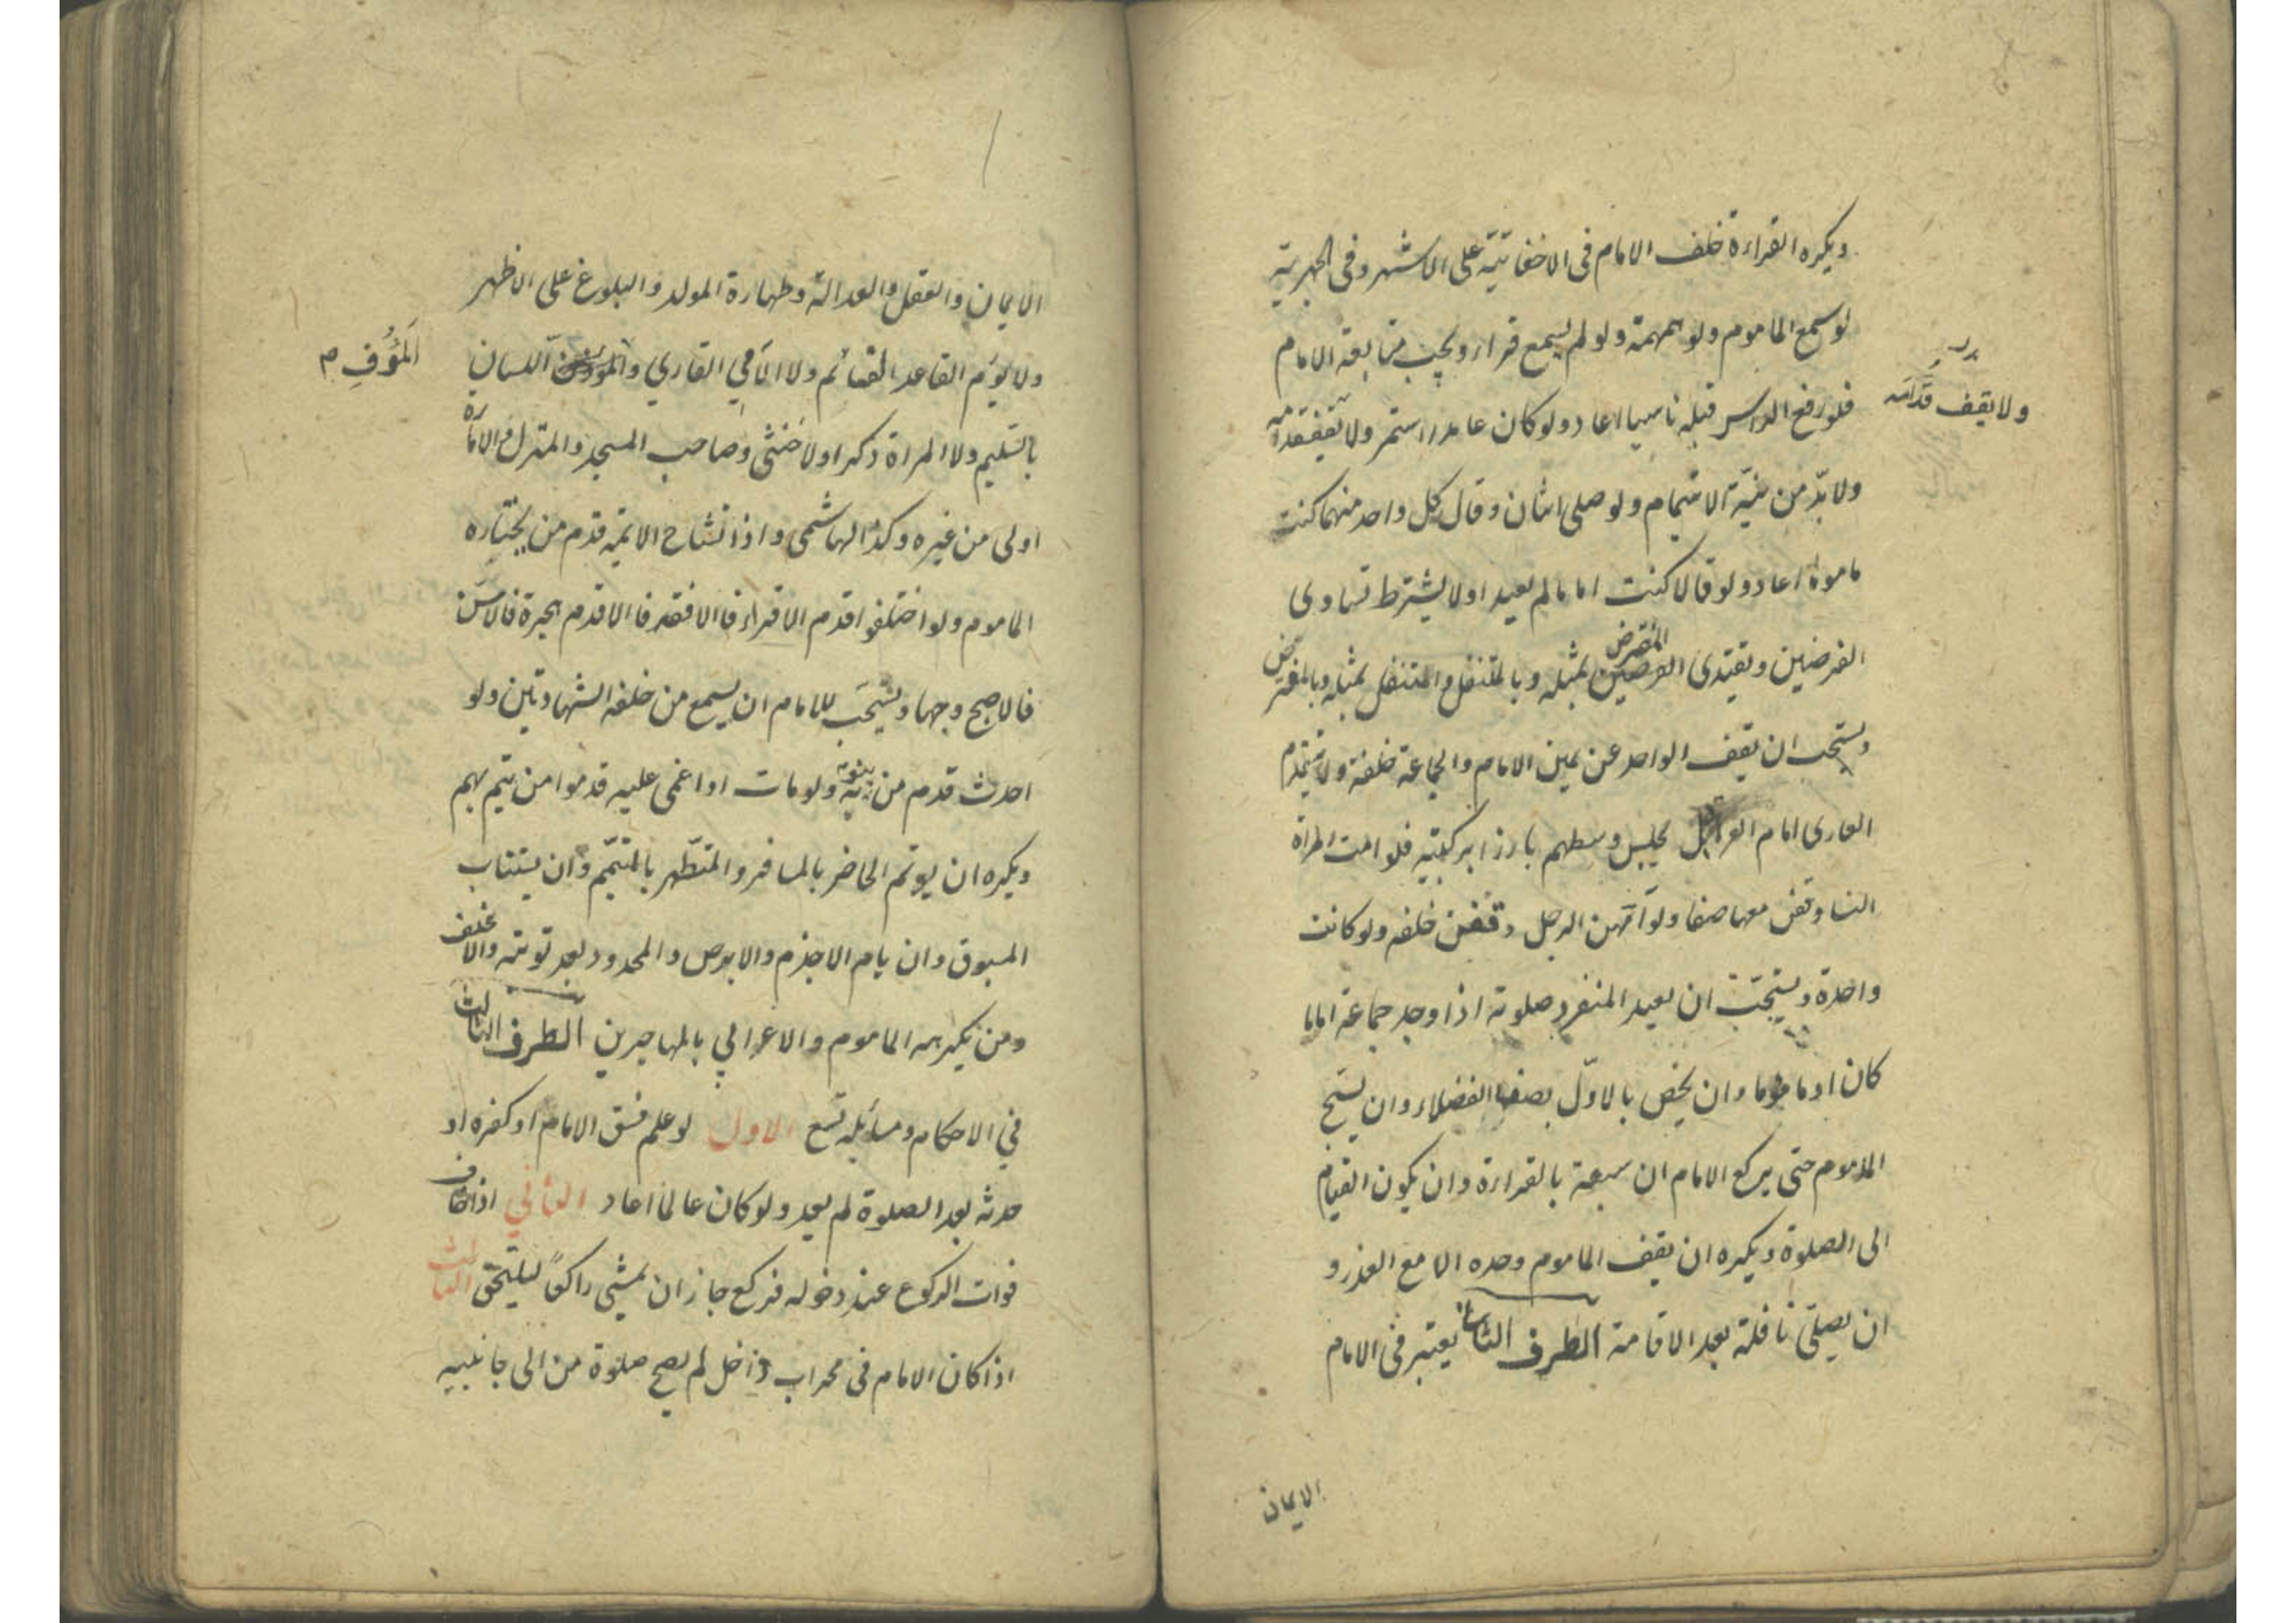 ويكره القراءة خلف الامام فى الاخفاتيّة على الاشهر وفى الجهرية
لو سمع الماموم ولو همهمة ولو لم يسمع قرا ويجب متابعة الامام
فلو رفع الراس قبله ناسيا اعاد ولو كان عامدا استمر ولا يقف
ولا يقف قدّامه
ولا بدّ من نيّة الايتمام ولو صلى اثنان وقال كل واحد منهما كنت
ماموما اعاد ولو قالا كنت اماما لم يعيدا ولا يشترط تساوى
الفرضين ويقتدى المفترض بمثله وبالمتنفل والمتنفل بمثله وبالمفترض
ويستحب ان يقف الواحد عن يمين الامام والجماعة خلفه ولا يتقدم
العارى امام العراة بل يجلس وسطهم بارزا بركبتيه فلو امت المراة
النسا وقفن معها صفا ولو امّهن الرجل وقفن خلفه ولو كانت
واحدة ويستحبّ ان يعيد المنفرد صلوته اذا وجد جماعة اماما
كان او ماموما وان يخص بالاوّل بصف الفضلاء وان يسبّح
الماموم حتى يركع الامام ان سبقه بالقراءة وان يكون القيام
الى الصلوة ويكره ان يقف الماموم وحده الا مع العذر و
ان يصلّى نافلة بعد الاقامة الطرف الثانى يعتبر فى الامام
الايمان
الايمان والعقل والعدالة وطهارة المولد والبلوغ على الاظهر
ولا يؤم القاعد القائم ولا الامّي القاري و اللسان
المؤف م
بالسليم ولا المراة ذكرا ولا خنثى وصاحب المسجد والمنزل والامارة
اولى من غيره وكذا الهاشمى واذا تشاح الايمة قدم من يختاره
الماموم ولو اختلفوا قدم الاقراء فالافقه فالاقدم هجرة فالاسنّ
فالاصبح وجها ويستحب للامام ان يسمع من خلفه الشهادتين ولو
احدث قدم من ينوبه ولو مات او اغمى عليه قدموا من يتم بهم
ويكره ان يوتم الحاضر بالمسافر والمتطهر بالمتيمّم وان يستناب
المسبوق وان يام الاجذم والابرص والمحدود بعد توبته والاغلف
ومن يكرهه الماموم والاعرابي بالمهاجرين الطرف الثالث
في الاحكام ومسائله تسع الاول لو علم فسق الامام او كفره او
حدثه بعد الصلوة لم يعد ولو كان عالما اعاد الثاني اذا خاف
فوات الركوع عند دخوله فركع جاز ان يمشي راكعًا ليلتحق الثالث
اذا كان الامام فى محراب داخل لم يصح صلوة من الى جانبيه